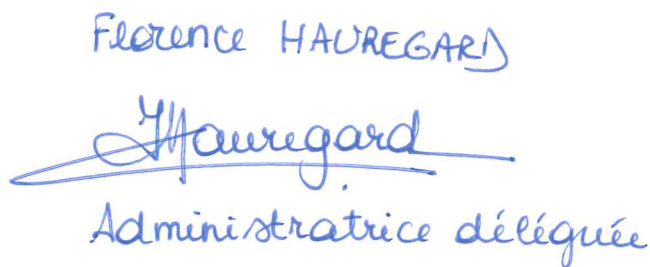 Florence HAUREGARD
JHauregard
Administratrice déléguée